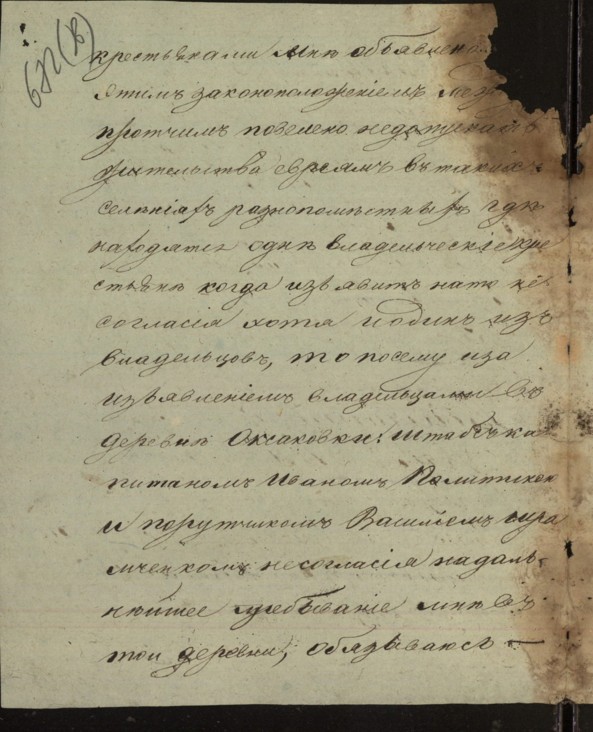 крестьянами мнѣ объявлено
этимъ законоположеніемъ
протчимъ повелено недопускать
жительства евреямъ в такихъ
селѣніяхъ разнопомѣстныхъ гдѣ
находятся однѣ владельческіе кре
стьянѣ когда изъявитъ нато не
согласія хотя иодинъ изъ
владельцовъ, то посему иза
изъявленіемъ владельцами въ
деревнѣ Оксаковки: штабсъ ка
питаномъ Иваномъ
и порутчикомъ Василіемъ
несогласія надаль
нѣйшее пребываніе мнѣ въ
той деревни, обязываюсь —